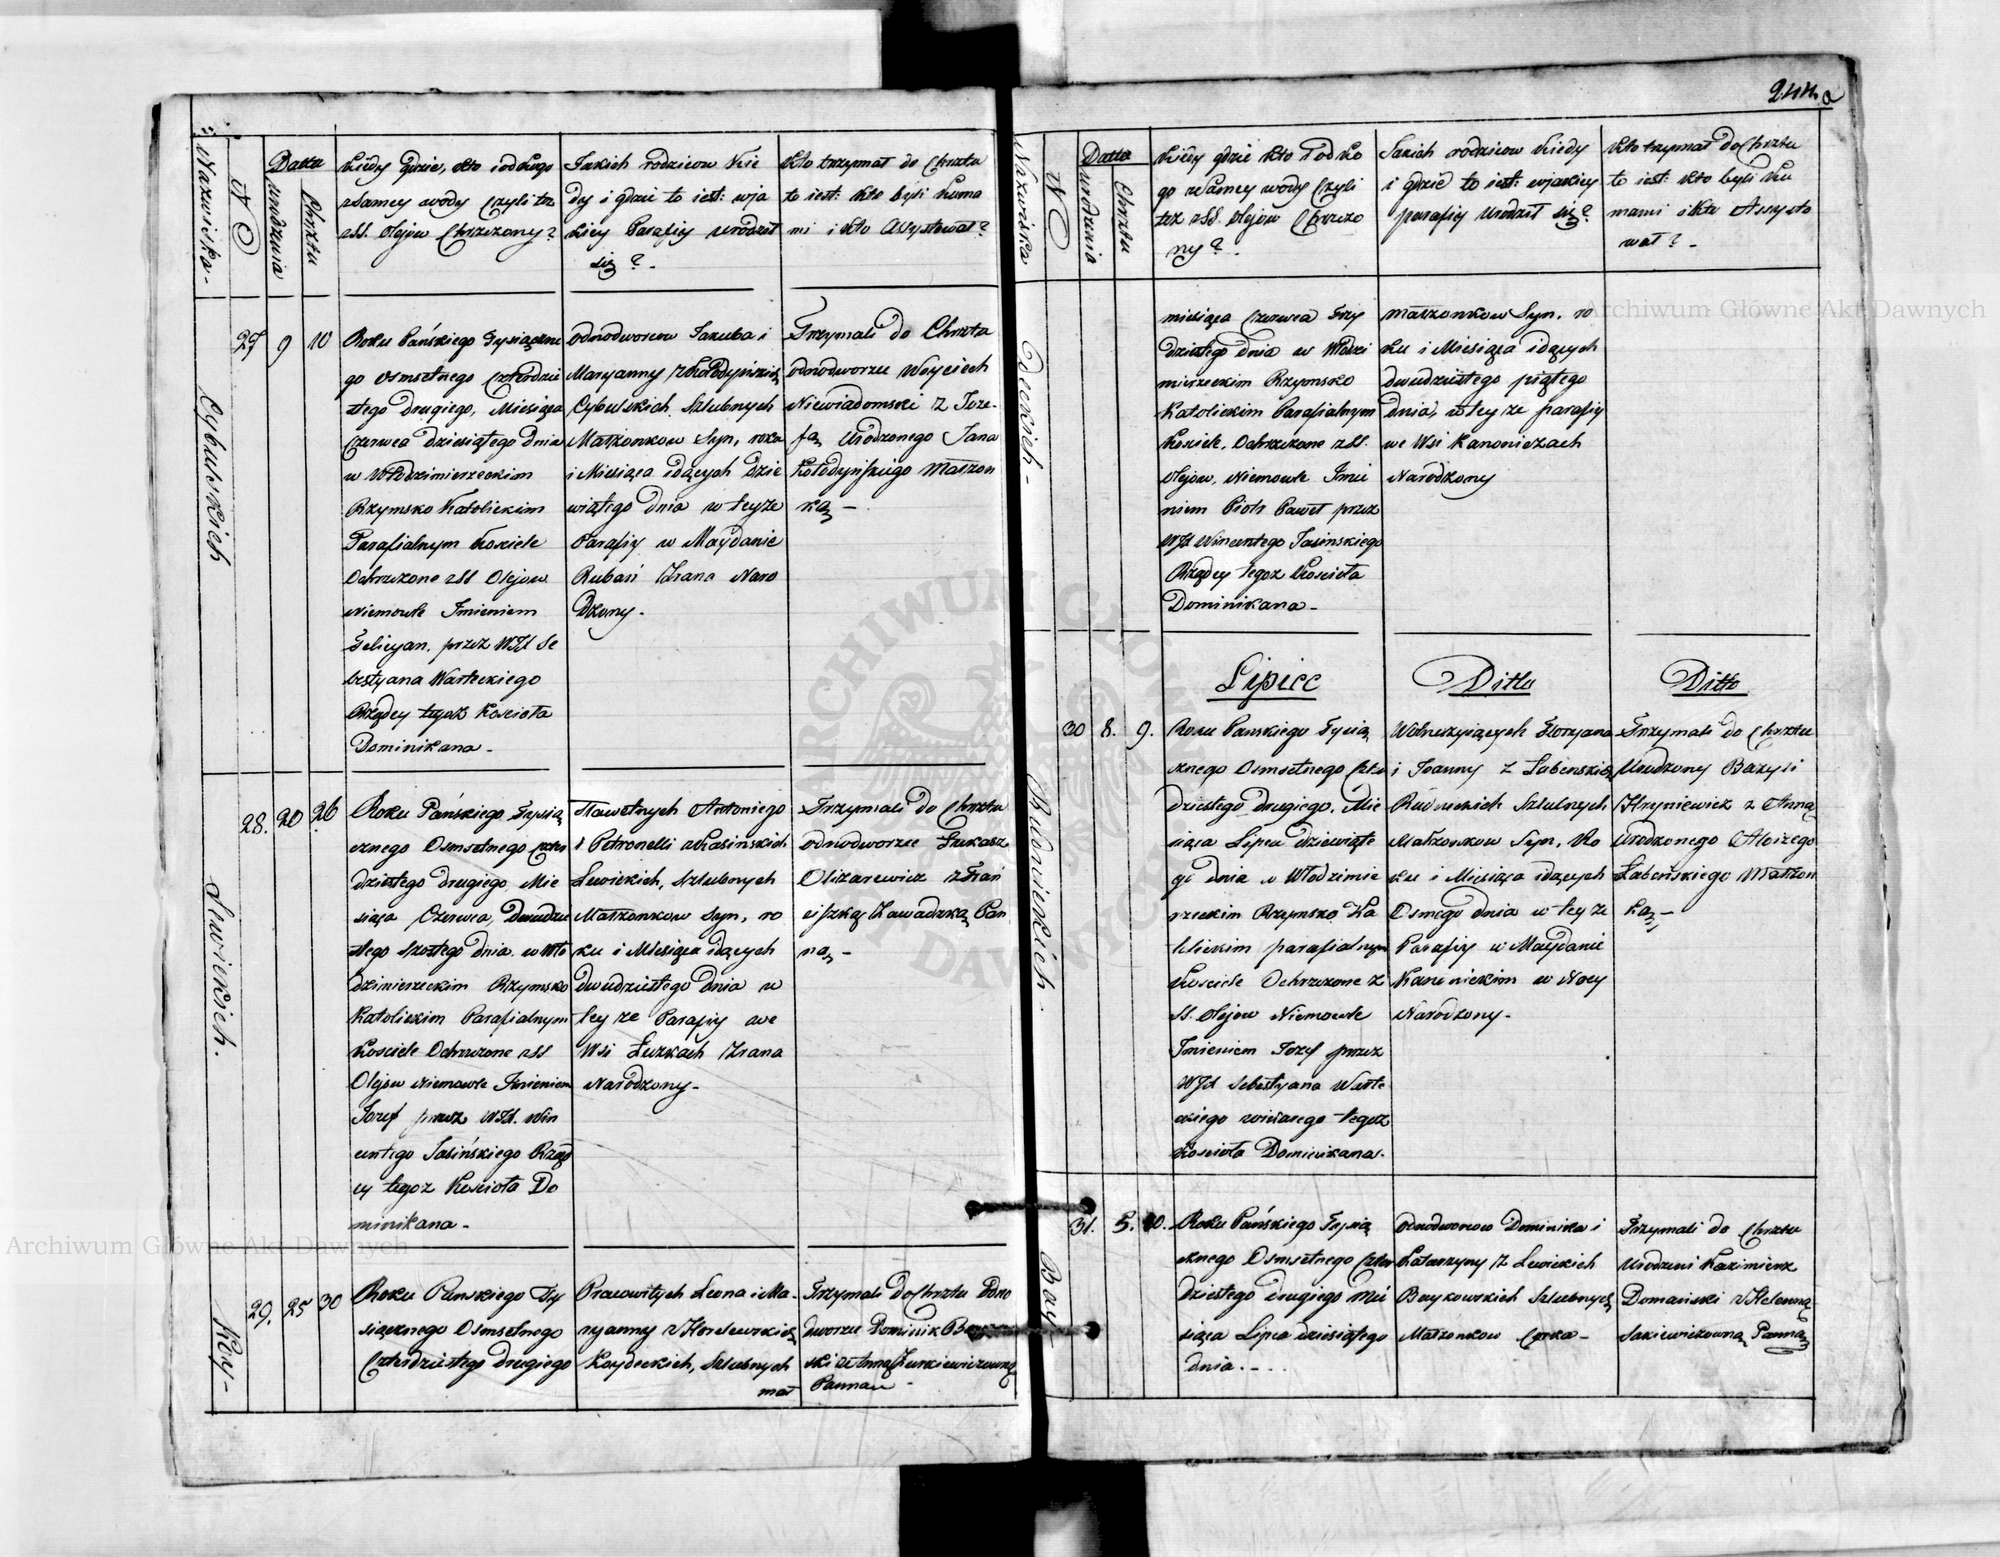 244. a
Nazwiska.
No
Datta
urodzenia
Chrztu
Kiedy gdzie, kto i od kogo
z samey wody czyli też
z SS. Olejow Chrzczony?
Jakich rodzicow Kie
dy i gdzie to iest: w ja
kiey Parafiy urodził
się?
Kto trzymał do Chrztu
to iest: Kto byli Kuma
mi i kto Assystował?
Cybulskich
27 9 10
Roku Pańskiego Tysiączne
go Osmsetnego Czterdzie
stego drugiego, Miesiąca
Czerwca dziesiątego dnia
w Włodzimierzeckim
Rzymsko Katolickim
Parafialnym Kosciele
Ochrzczone z SS Olejow
Niemowle Imieniem
Felicyan. przez WJX Se
bestyana Warteckiego
Rządcy tegoż Kościoła
Dominikana.
Odnodworcow Jakuba i
Maryanny z Kołodyńskich
Cybulskich Szlubnych
Małżonkow Syn, roku
i Miesiąca idących dzie
wiątego dnia w teyże
Parafiy w Maydanie
Rubań Zrana Naro
dzony.
Trzymali do Chrztu
odnodworzec Woyciech
Niewiadomski z Joze-
fą Urodzonego Jana
Kołodyńskiego Małżon
ką -
Lewickich.
28. 20 26
Roku Pańskiego Tysią
cznego Osmsetnego Czter
dziestego drugiego, Mie
siąca Czerwca, Dwudzie
stego szostego dnia. w Wło
dzimierzeckim Rzymsko
Katolickim Parafialnym
Kosciele Ochrzczone z SS
Olejow Niemowle Imieniem
Jozef przez WJX. Win
centego Jasińskiego Rząd
cy tegoż Kościoła Do
minikana.
Sławetnych Antoniego
i Petronelli z Kasińskich
Lewickich, Szlubnych
Małżonkow Syn, ro
ku i Miesiąca idących
dwudziestego dnia w
tey że Parafiy we
Wsi Luzkach Zrana
Narodzony.
Trzymali do Chrztu
odnodworzec Łukasz
Olizarewicz z Fran
ciszką Zawadzką Pan
ną -
Koy-
29. 25 30
Roku Panskiego Ty
siącznego Osmsetnego
Czterdziestego drugiego
Pracowitych Leona i Ma-
ryanny z Horslewskich
Koydeckich, Szlubnych
mał
Trzymali do Chrztu Odno
dworzec Dominik
ski z Anną Zurkiewiczowną
Panną -
Nazwiska
No
Datta
urodzenia
Chrztu
Kiedy gdzie kto i od ko
go z samey wody Czyli
też z SS. Olejow Chrzczo
ny?
Jakich rodzicow Kiedy
i gdzie to iest: w jakiey
parafiy Urodził się?
Kto trzymał do Chrztu
to iest: kto byli Ku
mami i kto Assysto
wał? -
deckich -
miesiąca Czerwca Trzy
dziestego dnia w Włodzi
mierzeckim Rzymsko
Katolickim Parafialnym
Kosciele, Ochrzczone z SS.
Olejow, Niemowle Imie
niem Piotr Paweł przez
WJX Wincentego Jasinskiego
Rządcy tegoż Kościoła
Dominikana -
małżonkow Syn, ro
ku i Miesiąca idących
dwudziestego piątego
dnia, w tey że parafiy
we Wsi Kanoniczach
Narodzony
Lipiec
Ditto
Ditto
Rudnickich.
30 8. 9.
Roku Panskiego Tysią
cznego Osmsetnego Czter
dziestego drugiego. Mie
siąca Lipca dziewiąte
go dnia w Włodzimie
rzeckim Rzymsko Ka
tolickim parafialnym
Kosciele Ochrzczone z
SS. Olejow Niemowle
Imieniem Jozef przez
WJX Sebestyana Warte
ckiego tegoż
Kościoła Dominikana.
Wolneżyiących Floryana
i Joanny z Łabenskich
Rudnickich Szlubnych
Małżonkow Syn, Ro
ku i Miesiąca idących
Osmego dnia w tey że
Parafiy w Maydanie
Kanonickim w Nocy
Narodzony.
Trzymali do Chrztu
Urodzony Bazyli
Hryniewicz z Anną
Urodzonego Aloizego
Łabeńskiego Małżon
ką -
Bay-
31. 5. 10.
Roku Pańskiego Tysią
cznego Osmsetnego Czter
dziestego drugiego Mie
siąca Lipca dziesiątego
dnia. - - .
Odnodworcow Dominika i
Katarzyny z Lewickich
Baykowskich Szlubnych
Małżonkow Corka -
Trzymali do Chrztu
Urodzeni Kazimierz
Domański z Helenną
Sakiewiczowną Panną
Archiwum Główne Akt Dawnych
Archiwum Główne Akt Dawnych